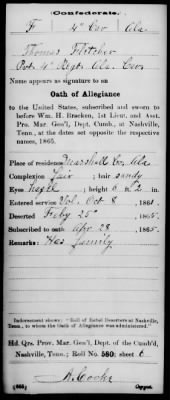 Confederate.
F 4" Cav Ala
Thomas Fletcher
Pvt. 4" Regt. Ala. Cav.
Name appears as signature to an
Oath of Allegiance
to the United States, subscribed and sworn to
before Wm. H. Bracken, 1st Lieut. and Asst.
Pro. Mar. Gen'l, Dept. Cumb., at Nashville,
Tenn., at the dates set opposite the respective
names, 1865.
Place of residence Marshall Co. Ala
Complexion Fair ; hair sandy
Eyes hazel ; height 6 ft. 2 in.
Entered service Vol. Oct 8, 186
Deserted Feby 25" 1865.
Subscribed to oath Apr 28, 1865.
Remarks: Has family
Indorsement shows: "Roll of Rebel Deserters at Nashville,
Tenn., to whom the Oath of Allegiance was administered."
Hd. Qrs. Provo. Mar. Gen'l, Dept. of the Cumb'd,
Nashville, Tenn.; Roll No. 580; sheet 6
Cooke
Copyist.